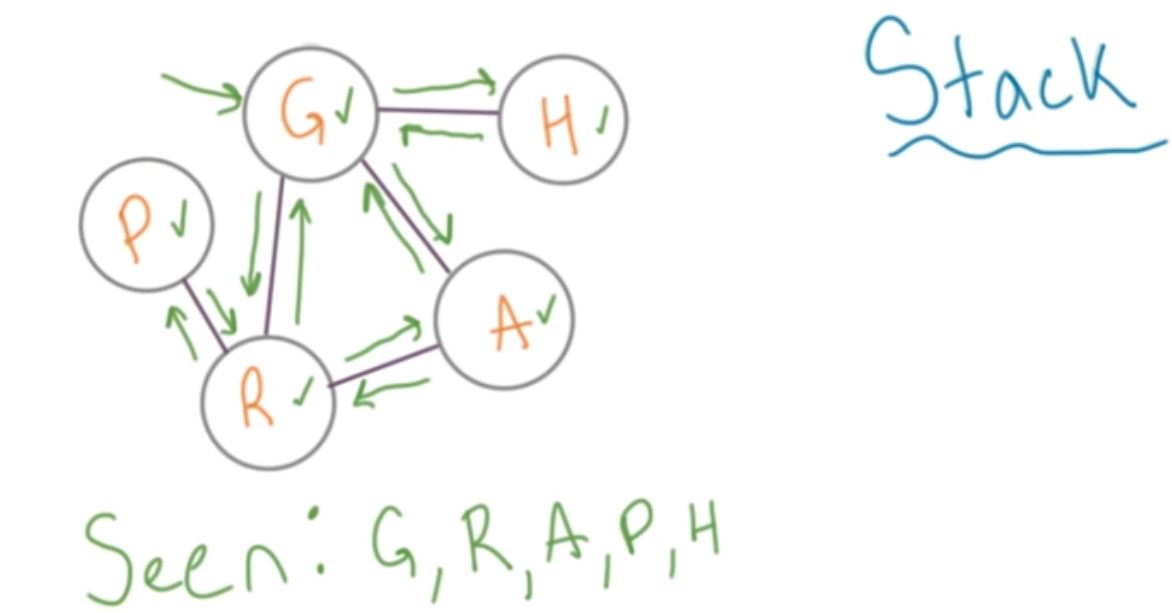 Stack
G ✓
H ✓
P ✓
A ✓
R ✓
Seen: G, R, A, P, H